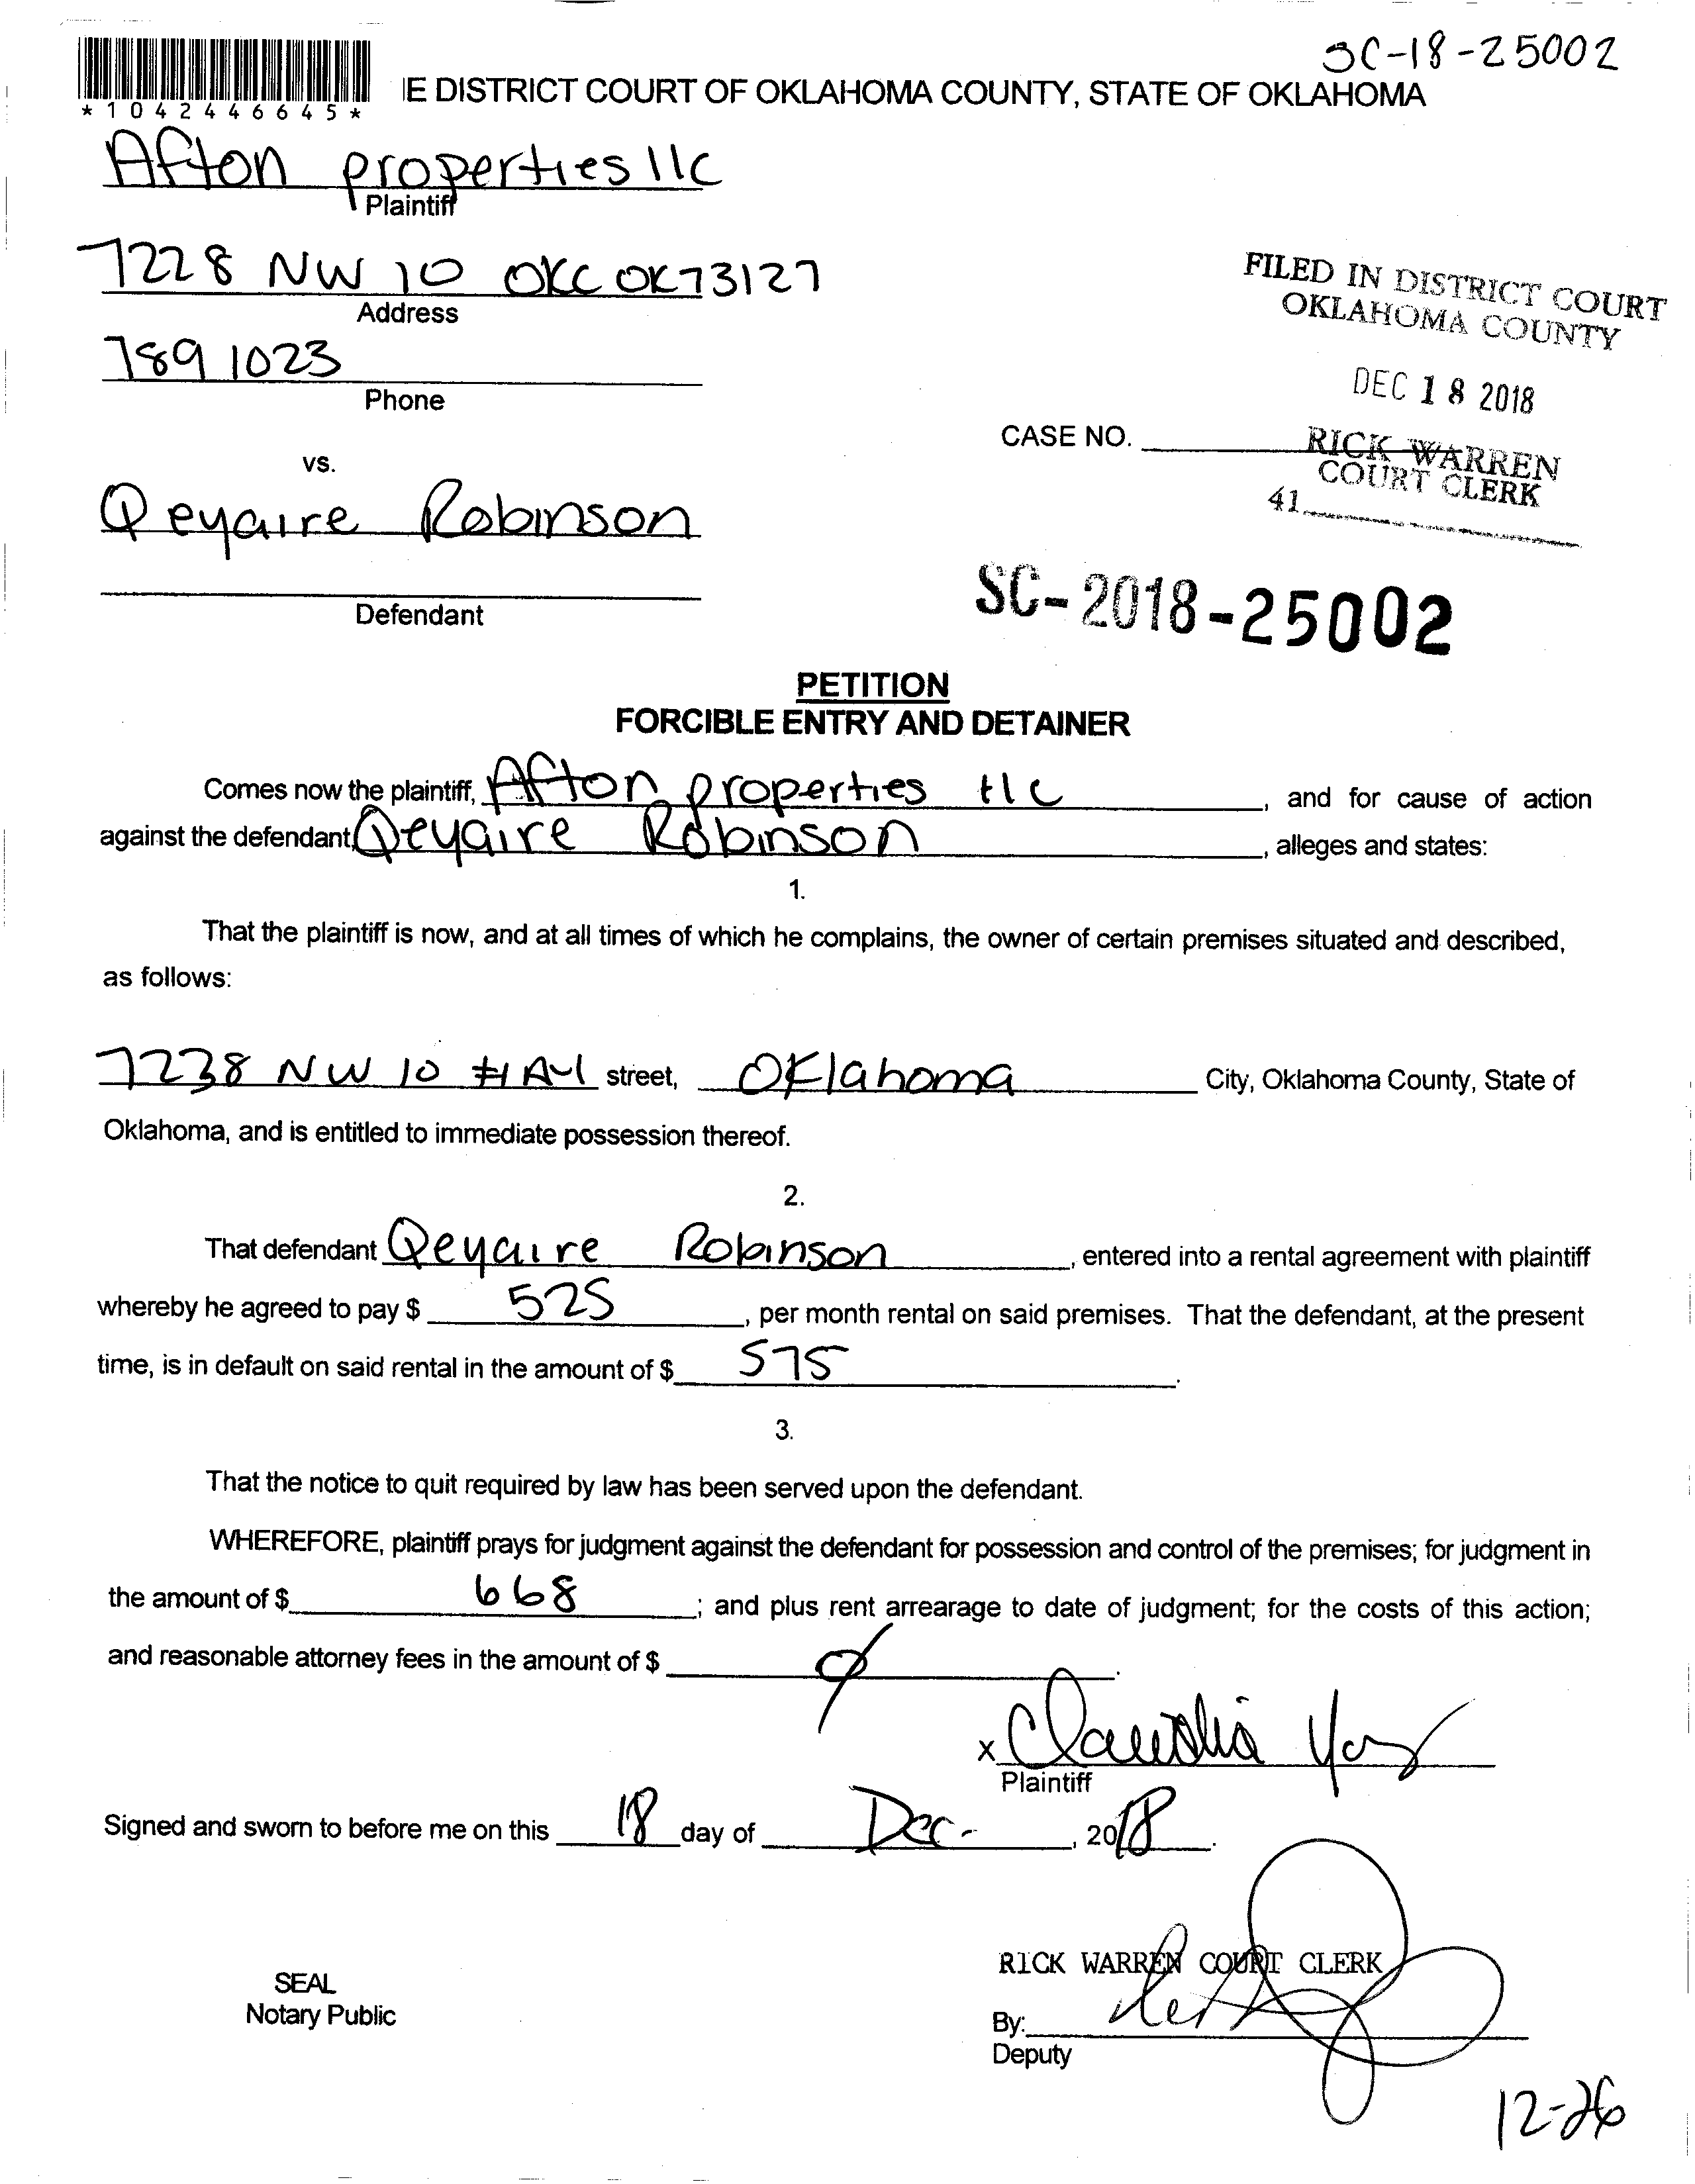 SC-18-25002
*1042446645*
IE DISTRICT COURT OF OKLAHOMA COUNTY, STATE OF OKLAHOMA
Afton properties llc
Plaintiff
7228 NW 10 OKC OK 73127
Address
FILED IN DISTRICT COURT
OKLAHOMA COUNTY
789 1023
Phone
DEC 18 2018
CASE NO.
RICK WARREN
COURT CLERK
41
vs.
Qeyaire Robinson
Defendant
SC-2018-25002
PETITION
FORCIBLE ENTRY AND DETAINER
Comes now the plaintiff, Afton properties llc, and for cause of action
against the defendant, Qeyaire Robinson, alleges and states:
1.
That the plaintiff is now, and at all times of which he complains, the owner of certain premises situated and described,
as follows:
7238 NW 10 #A-1 street, Oklahoma City, Oklahoma County, State of
Oklahoma, and is entitled to immediate possession thereof.
2.
That defendant Qeyaire Robinson, entered into a rental agreement with plaintiff
whereby he agreed to pay $ 525, per month rental on said premises. That the defendant, at the present
time, is in default on said rental in the amount of $ 575.
3.
That the notice to quit required by law has been served upon the defendant.
WHEREFORE, plaintiff prays for judgment against the defendant for possession and control of the premises; for judgment in
the amount of $ 668; and plus rent arrearage to date of judgment; for the costs of this action;
and reasonable attorney fees in the amount of $ 0.
x Claudia
Plaintiff
Signed and sworn to before me on this 18 day of Dec-, 2018.
RICK WARREN COURT CLERK
SEAL
Notary Public
By:
Deputy
12-26